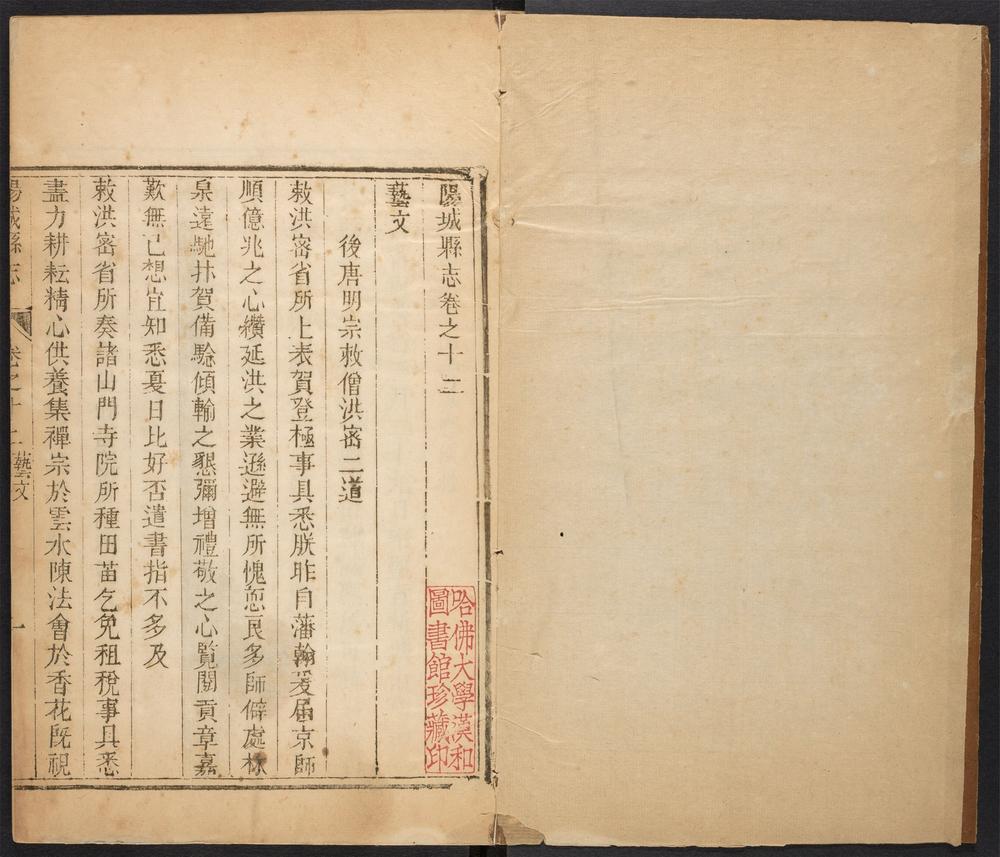 陽城縣志卷之十二
哈佛大學漢和
圖書館珍藏印
藝文
後唐明宗敕僧洪密二道
敕洪密省所上表賀登極事具悉朕昨自藩翰爰届京師
順億兆之心纘延洪之業遜避無所愧恧良多師僻處林
泉遠馳抃賀備驗傾輸之懇彌增禮敬之心覧閱貢章嘉
歎無已想宜知悉夏日比好否遣書指不多及
敕洪密省所奏諸山門寺院所種田苗乞免租稅事具悉
盡力耕耘精心供養集禪宗於雲水陳法會於香花既視
陽城縣志 卷之十二藝文 一